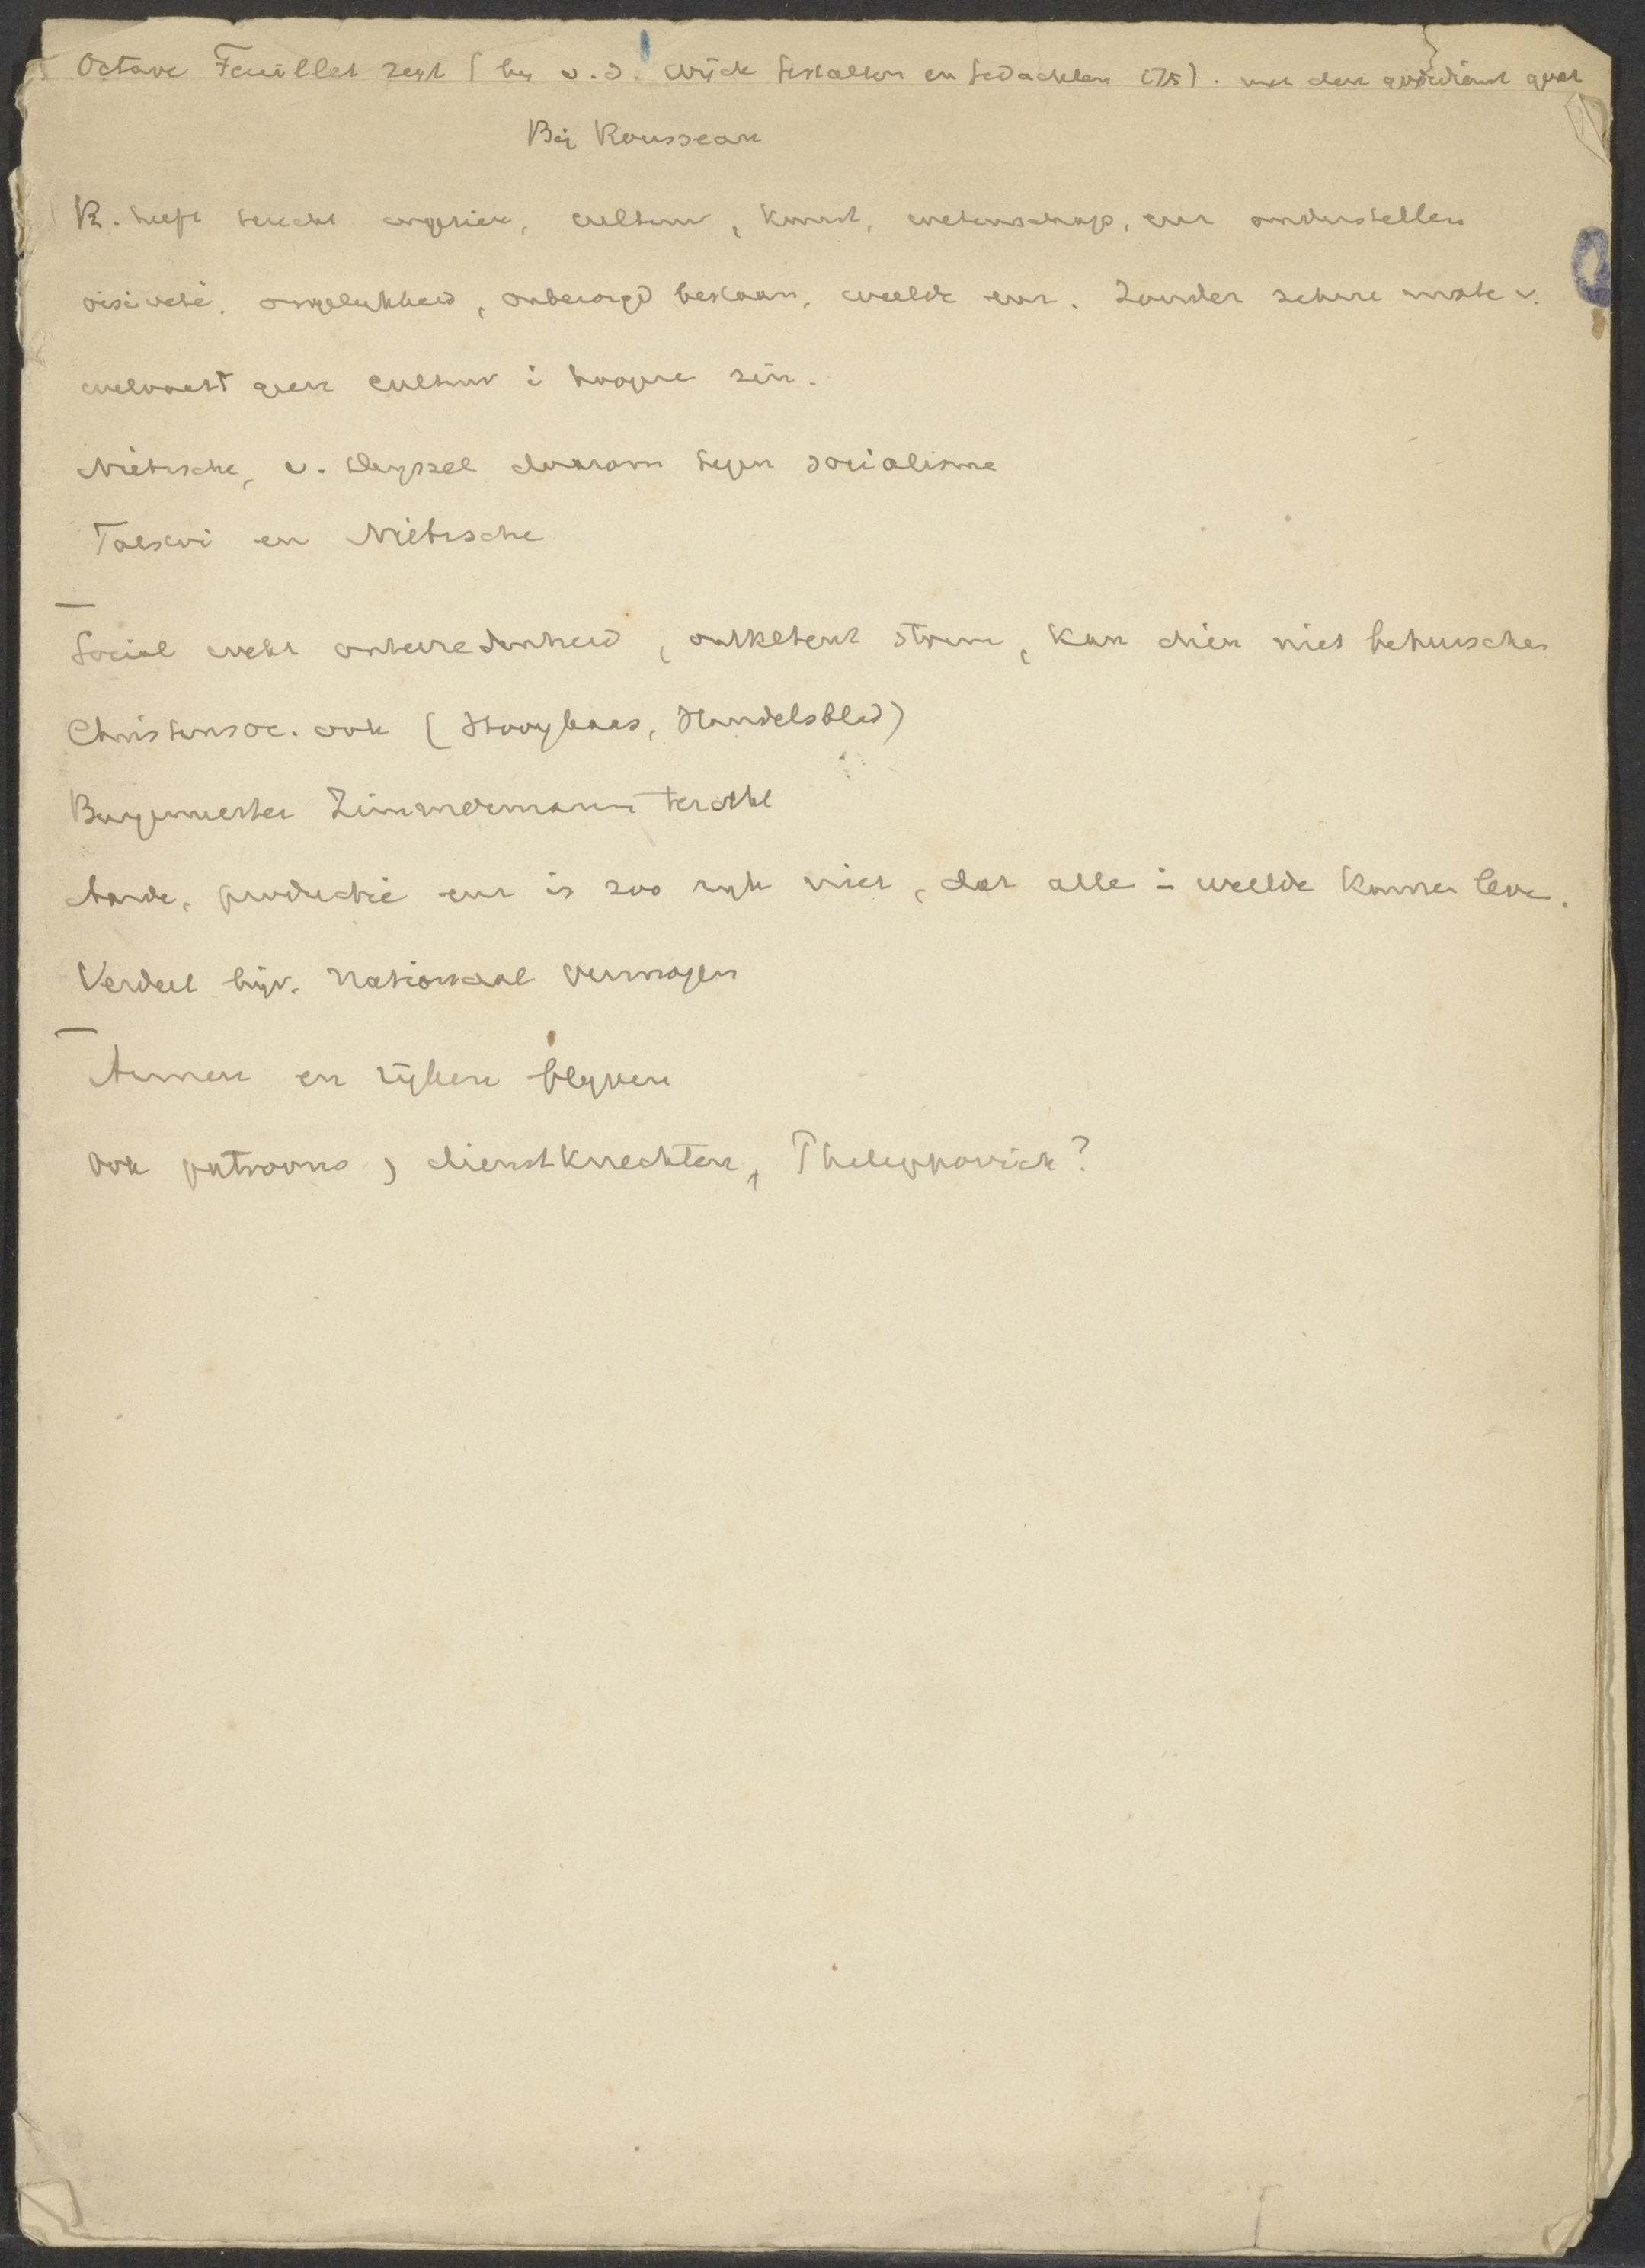 Octave Feuillet zegt (by v.d. Wijck Gestalten en Gedachten 175). met den godsdienst gaat
Bij Rousseau
R. heeft terecht ingezien, cultuur, kunst, wetenschap, enz onderstellen
oisiveté, ongelykheid, onbezorgd bestaan, weelde enz. Zonder zekere mate v.
welvaart geen cultuur i hoogere zin.
Nietzsche, v. Deyssel daarom tegen socialisme
Tolstoi en Nietzsche
Social wekt ontevredenheid, ontketent storm, kan dien niet beheerschen
Christensoc. ook (Hooybaas, Handelsblad)
Burgemeester Zimmermann terecht
Aarde, productie enz is zoo ryk niet, dat alle i weelde kunnen leve.
Verdeel bijv. Nationaal vermogen
Armen en ryken blyven
Ook patroons, dienstknechten, Philippovich?